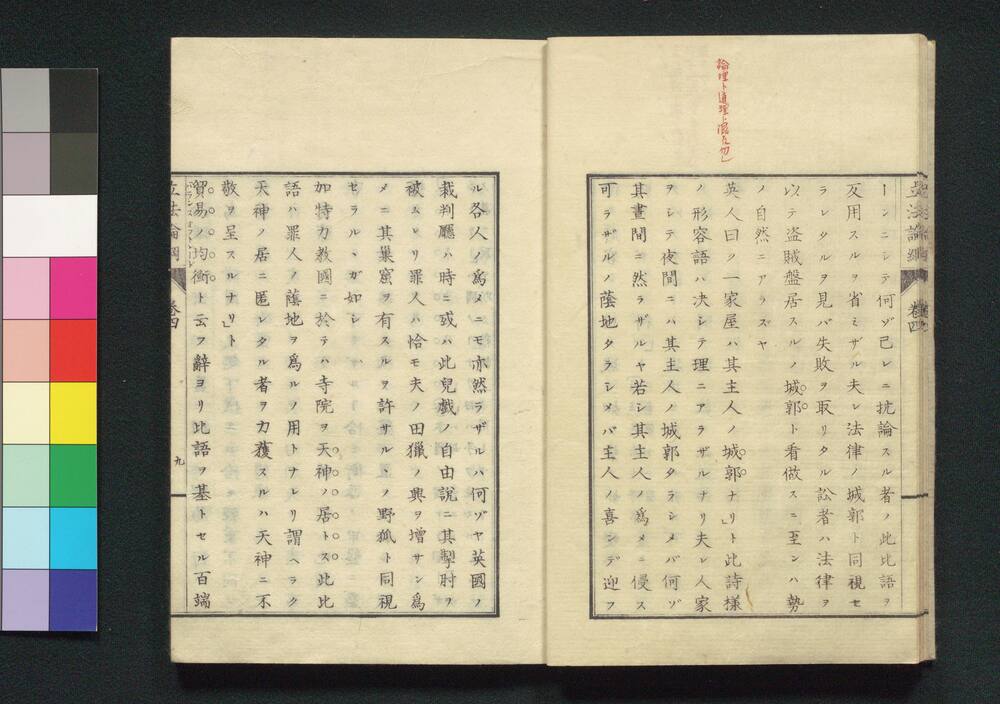 論理ト道理ト混ズ勿レ
立法論綱 卷四
ーンニシテ何ゾ己レニ抗論スル者ノ此比語ヲ
反用スルヲ省ミザル夫レ法律ノ城郭ト同視セ
ラレタルヲ見バ失敗ヲ取リタル訟者ハ法律ヲ
以テ盗賊盤居スルノ城郭ト看做スニ至ンハ勢
ノ自然ニアラズヤ
英人曰ク一家屋ハ其主人ノ城郭ナリ」ト此詩樣
ノ形容語ハ決シテ理ニアラザルナリ夫レ人家
ヲシテ夜間ニハ其主人ノ城郭タラシメバ何ゾ
其晝間ニ然ラザルヤ若シ其主人ノ爲メニ侵ス
可ラザルノ蔭地タラシメバ主人ノ喜ンデ迎フ
ル各人ノ爲メニモ亦然ラザルハ何ゾヤ英國ノ
裁判廳ハ時ニ或ハ此兒戲ノ自由説ニ其掣肘ヲ
被ムレリ罪人ハ恰モ夫ノ田獵ノ興ヲ增サン爲
メニ其巢窟ヲ有スルヲ許サル丶ノ野狐ト同視
セラル丶ガ如シ
加特力教國ニ於テハ寺院ヲ天神ノ居トス此比
語ハ罪人ノ蔭地ヲ爲ルノ用トナレリ謂ヘラク
天神ノ居ニ匿レタル者ヲ力獲スルハ天神ニ不
敬ヲ呈スルナリ」ト
貿易ノ均衡ト云フ辭ヨリ比語ヲ基トセル百端
立法論綱 卷四 九